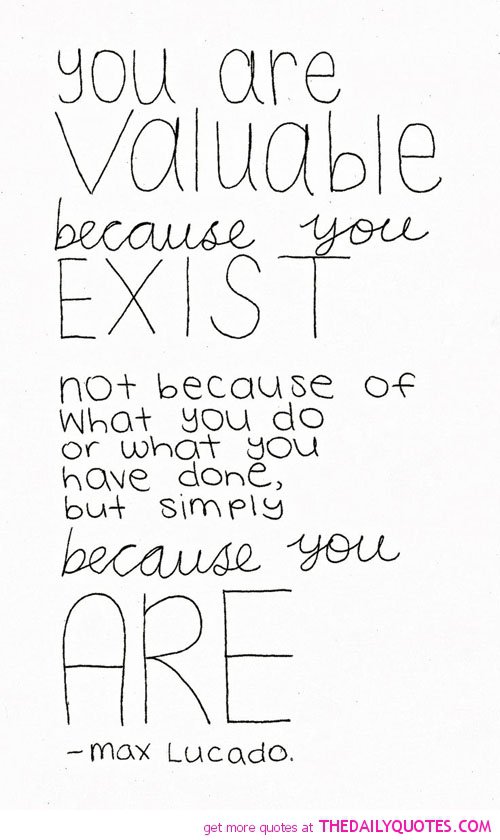 you are
Valuable
because you
EXIST
not because of
What you do
or what you
have done,
but simply
because you
ARE
-max Lucado.
get more quotes at THEDAILYQUOTES.COM